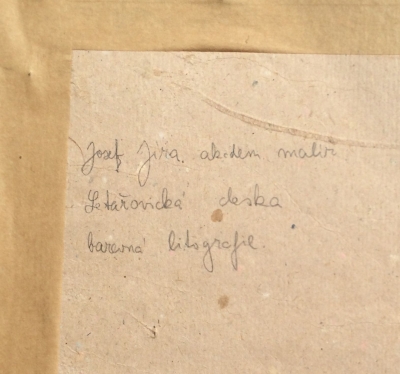 Josef Jíra, akadem malíř
Letařovická deska
barevná litografie.